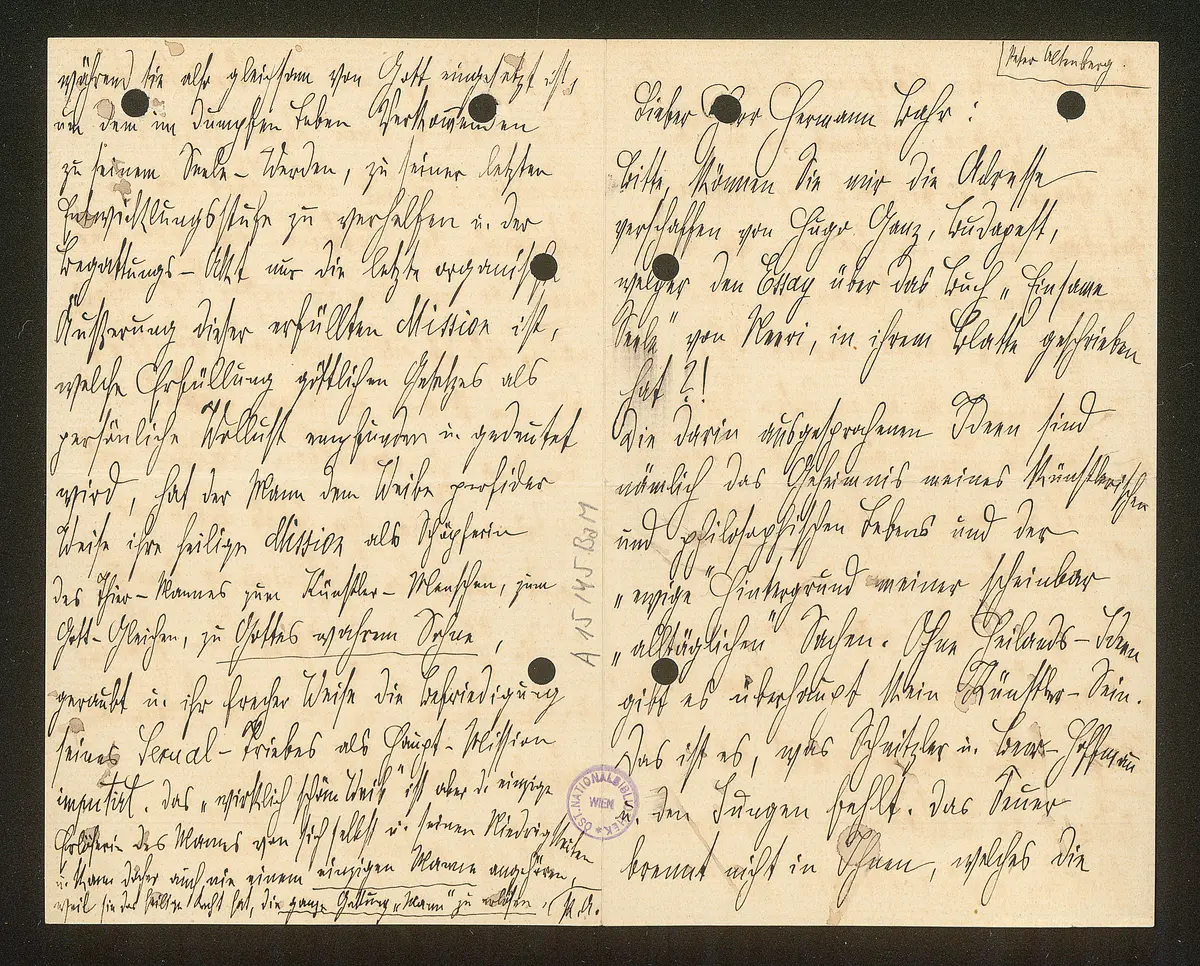 Peter Altenberg.
Lieber Herr Hermann Bahr :
Bitte, können Sie mir die Adresse
verschaffen von Hugo Ganz, Budapest,
welcher den Essay über das Buch „Einsame
Seele" von Neeri, in ihrem Blatte geschrieben
hat ?!
Die darin ausgesprochenen Ideen sind
nämlich das Geheimnis meines künstlerischen
und philosophischen Lebens und der
„ewige" Hintergrund meiner scheinbar
„alltäglichen" Sachen. Ohne Heilands-Ideen
gibt es überhaupt kein Künstler-Sein.
Das ist es, was Schnitzler u. Beer-Hoffmann
den Jungen fehlt. Das Feuer
brennt nicht in Ihnen, welches die
während sie also gleichsam von Gott eingesetzt ist,
um dem im dumpfen Leben Verkommenden
zu seinem Seele-Werden, zu seiner letzten
Entwicklungsstufe zu verhelfen u. der
Begattungs-Akt nur die letzte organische
Äußerung dieser erfüllten Mission ist,
welche Erfüllung göttlichen Gesetzes als
persönliche Wollust empfunden u. gedeutet
wird, hat der Mann dem Weibe perfider
Weise ihre heilige Mission als Schöpferin
des Thier-Mannes zum Künstler-Menschen, zum
Gott-Gleichen, zu Gottes wahrem Sohne,
geraubt u. ihr frecher Weise die Befriedigung
seines Sexual-Triebes als Haupt-Mission
imputirt. Das „wirklich schöne Weib" ist aber die einzige
Erlöserin des Mannes von sich selbst u. seinen Niedrigkeiten
u. kann daher auch nie einem einzigen Manne angehören,
weil sie das heilige Recht hat, die ganze Gattung „Mann" zu erlösen. (P. A.
A 15145 BaM
ÖST. NATIONALBIBLIOTHEK
WIEN